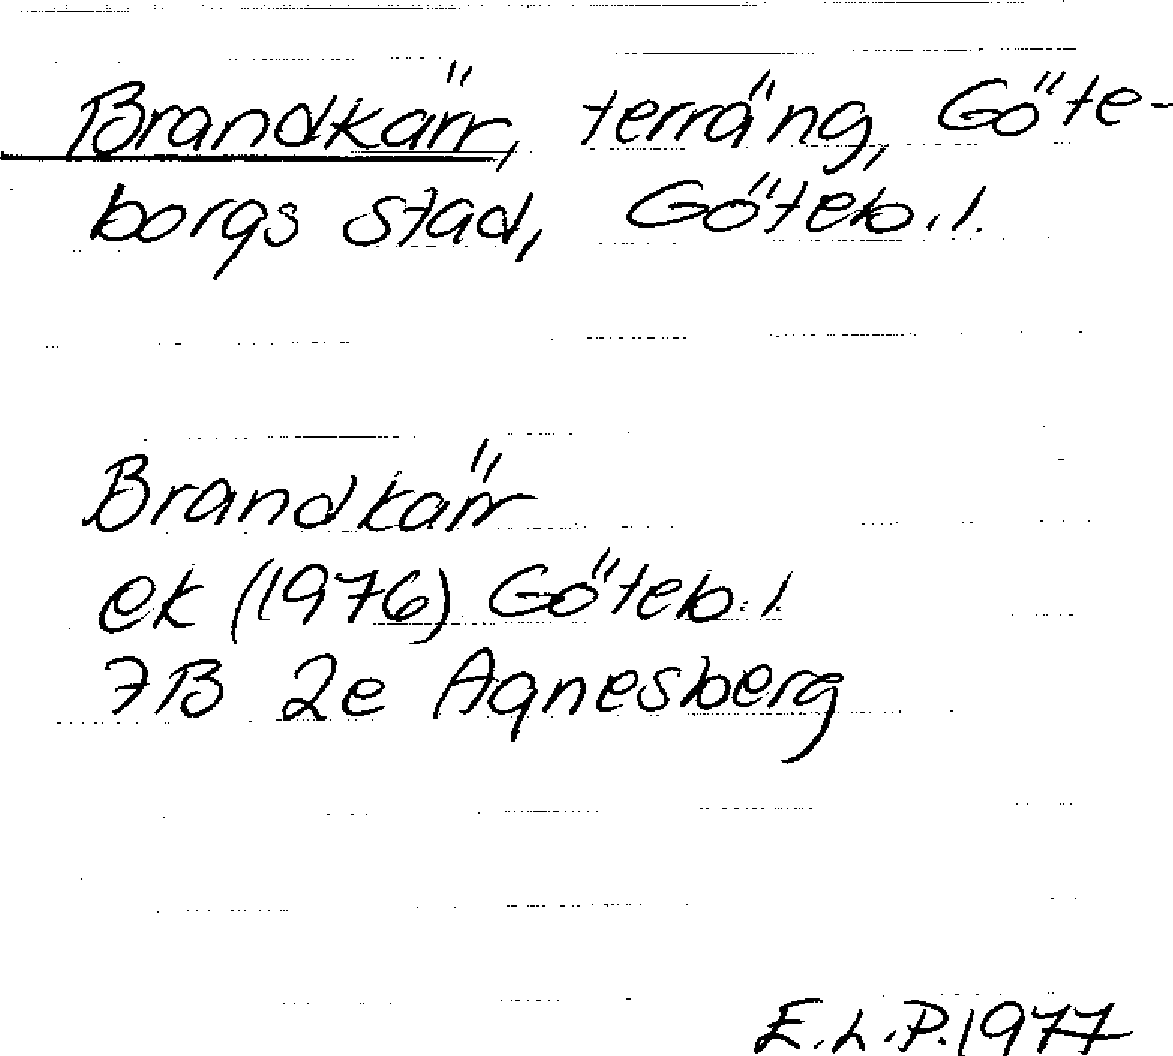 Brandkärr, terräng, Göte-
borgs stad, Göteb. l.
Brandkärr
ek (1976) Göteb. l.
7B 2e Agnesberg
E.L.P. 1977